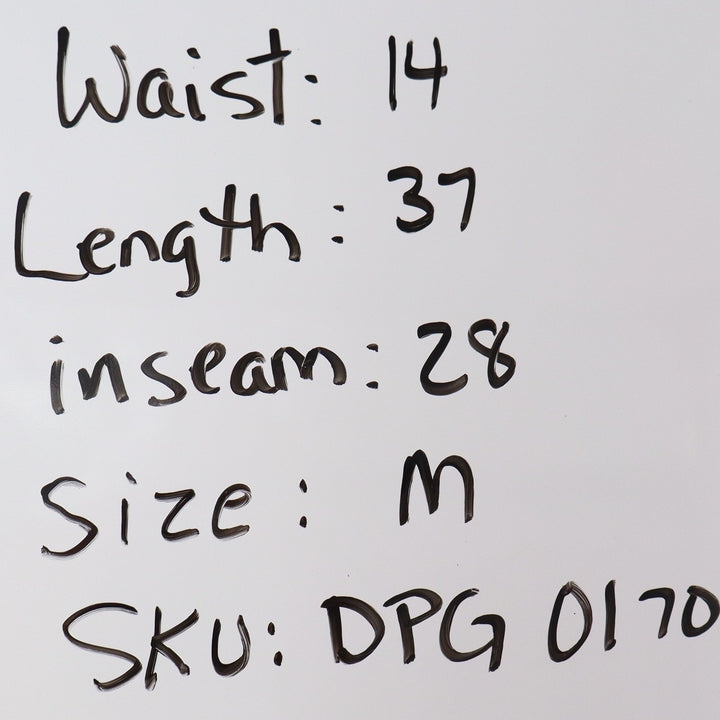 Waist: 14
Length: 37
inseam: 28
Size: M
SKU: DPG 0170